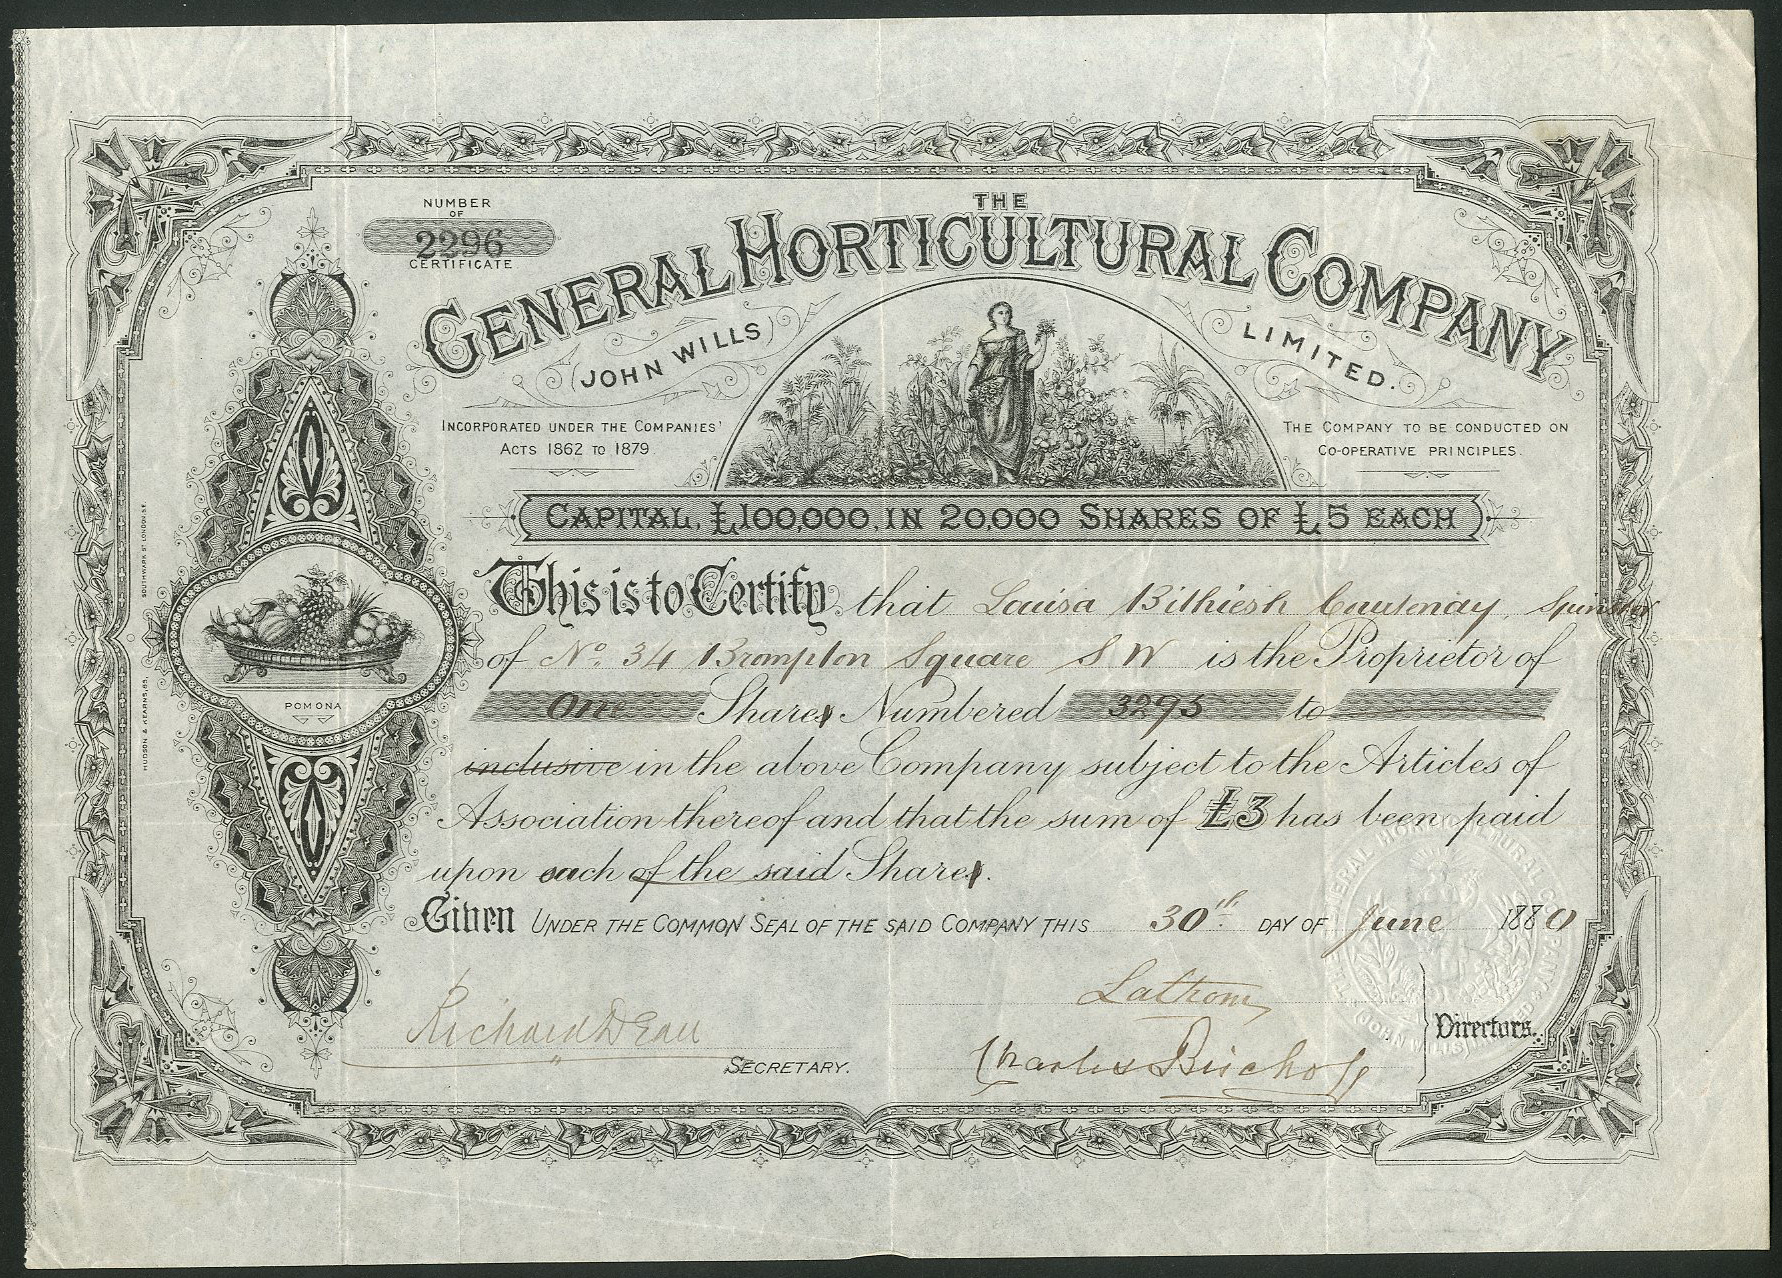 NUMBER
OF
2296
CERTIFICATE
THE
GENERAL HORTICULTURAL COMPANY
(JOHN WILLS)
LIMITED.
INCORPORATED UNDER THE COMPANIES'
ACTS 1862 TO 1879
THE COMPANY TO BE CONDUCTED ON
CO-OPERATIVE PRINCIPLES.
CAPITAL, £100,000, IN 20,000 SHARES OF £5 EACH
This is to Certify that Louisa Courtenay, Spinster
of No. 34 Brompton Square S W is the Proprietor of
One Shares Numbered 3295 to
inclusive in the above Company subject to the Articles of
Association thereof and that the sum of £3 has been paid
upon each of the said Shares.
Given UNDER THE COMMON SEAL OF THE SAID COMPANY THIS 30th DAY OF June 1880
Lathom
Richard Dean
SECRETARY.
Charles Bischoff
Directors.
POMONA
HUDSON & KEARNS, 83, SOUTHWARK ST LONDON S.E.
THE GENERAL HORTICULTURAL COMPANY
(JOHN WILLS) LIMITED